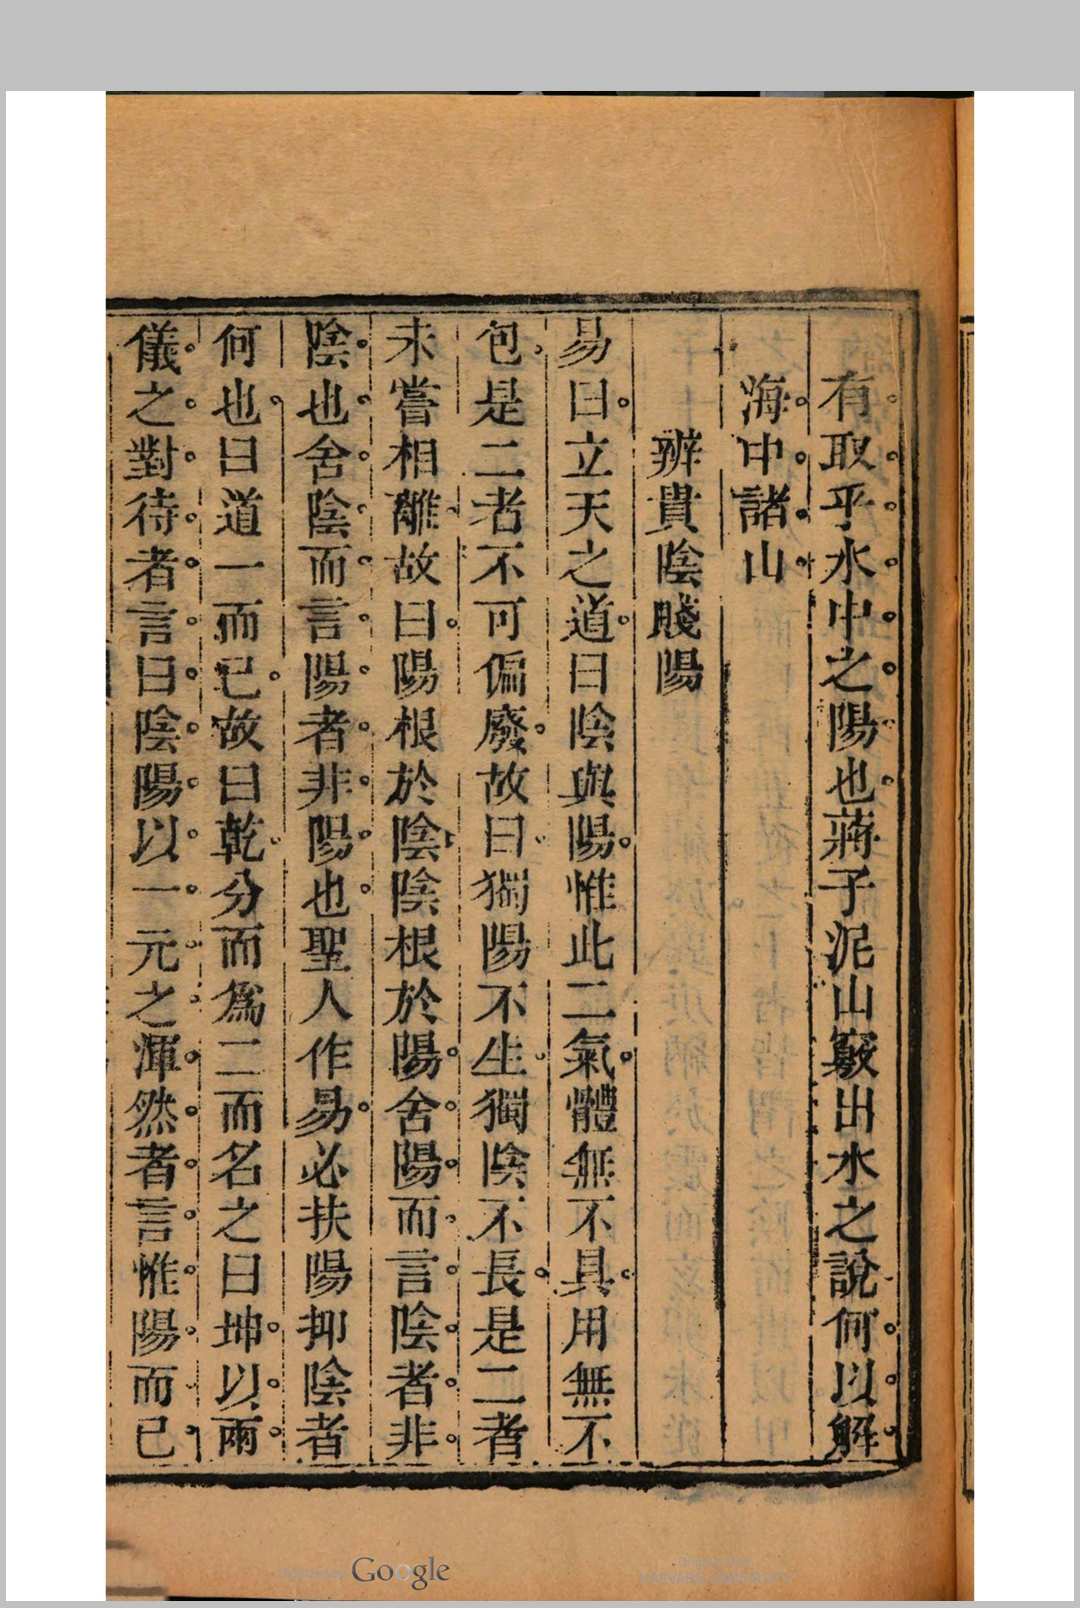 有取乎水中之陽也蔣子泥山竅出水之說何以解
海中諸山
辨貴陰賤陽
易曰立天之道曰陰與陽惟此二氣體無不具用無不
包是二者不可偏廢故曰獨陽不生獨陰不長是二者
未嘗相離故曰陽根於陰陰根於陽舍陽而言陰者非
陰也舍陰而言陽者非陽也聖人作易必扶陽抑陰者
何也曰道一而已故曰乾分而爲二而名之曰坤以兩
儀之對待者言曰陰陽以一元之渾然者言惟陽而已
Google